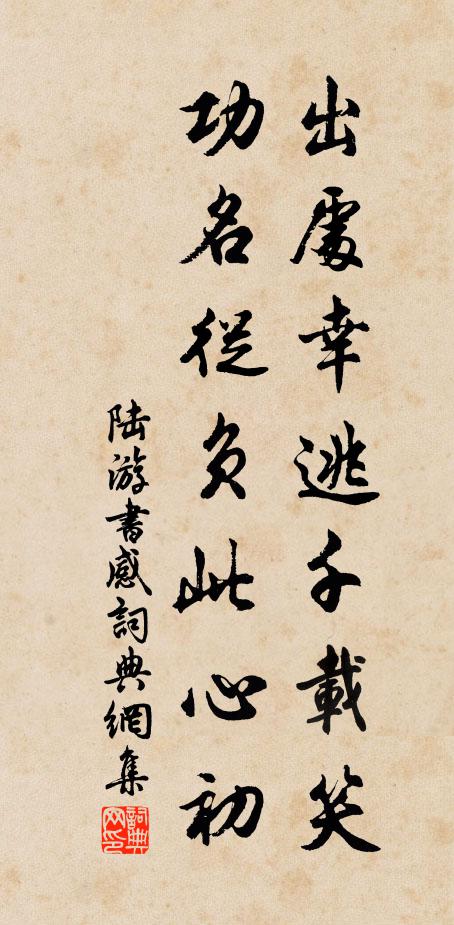 出處幸逃千載笑
功名從負此心初
陸游書感詞典網集
詞典網印